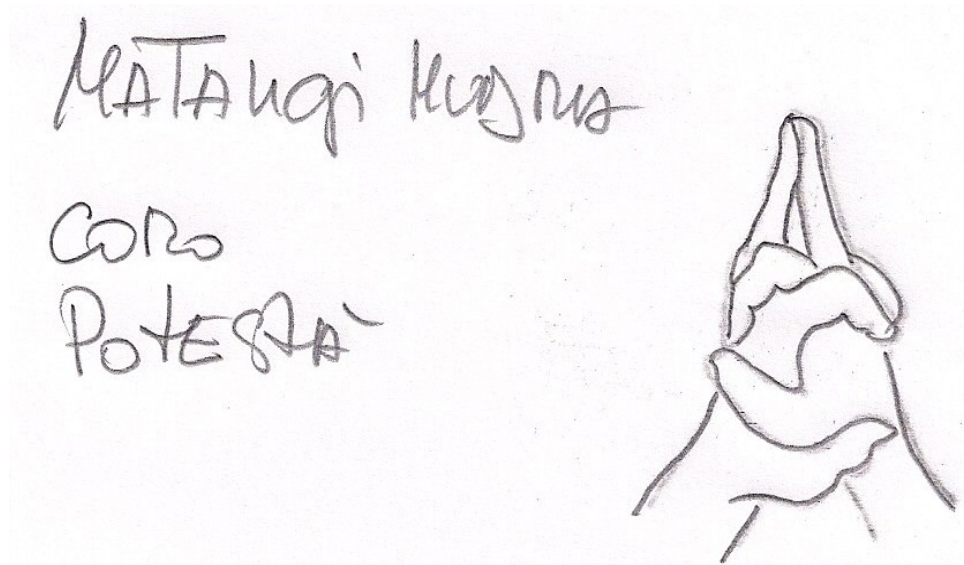 MATANGi MUDRA
CORO
POTESTA'